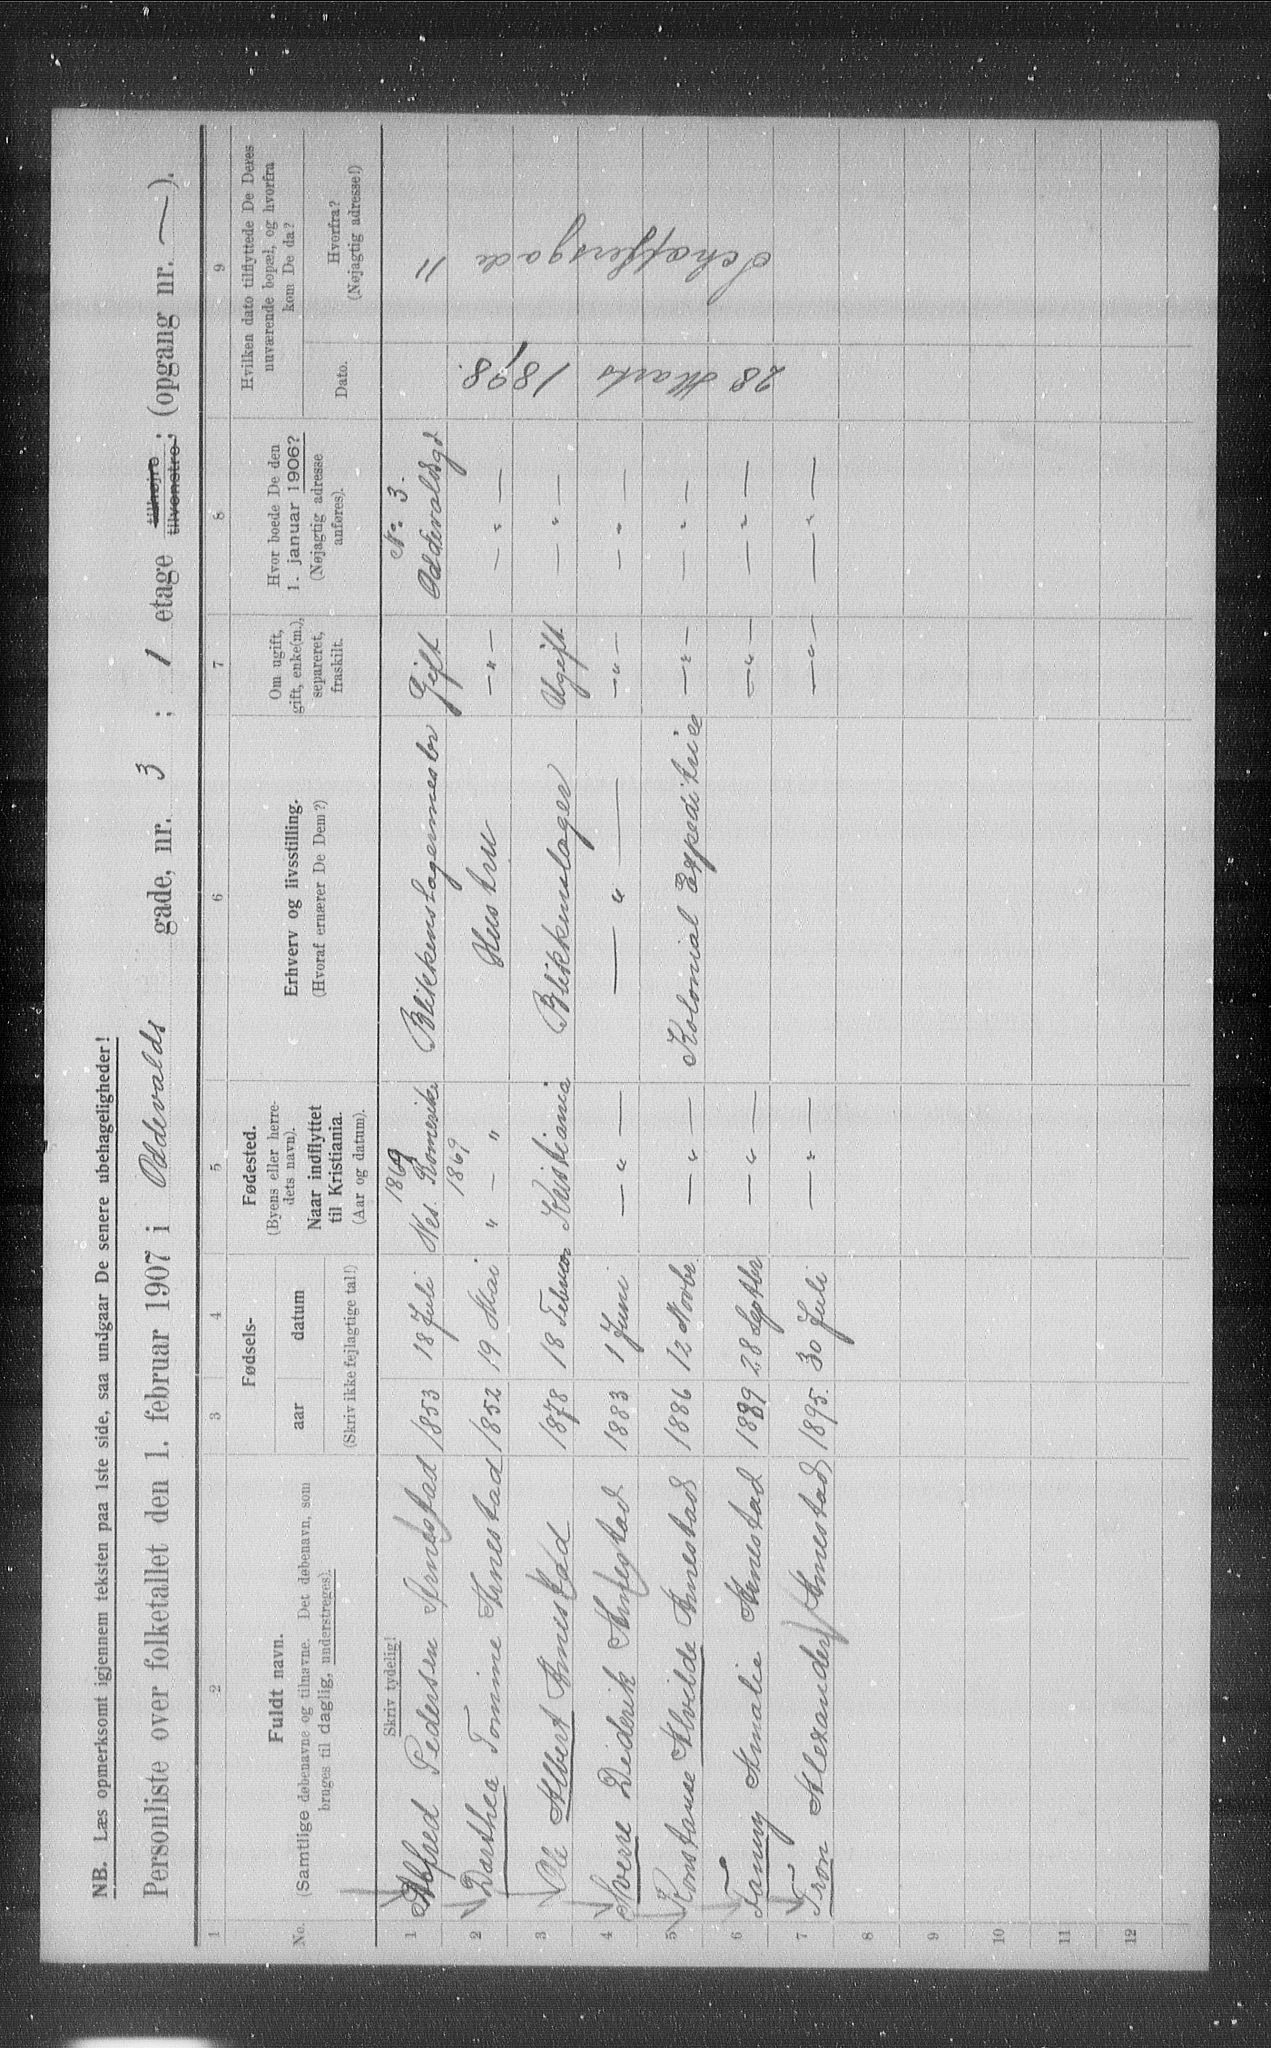 NB. Læs opmerksomt igjennem teksten paa 1ste side, saa undgaar De senere ubehageligheder!
Personliste over folketallet den 1. februar 1907 i Oddevalds gade, nr. 3 ; 1 etage tilhøjre tilvenstre ; (opgang nr. — ).
1 2 3 4 5 6 7 8 9
No.
Fuldt navn.
(Samtlige døbenavne og tilnavne. Det døbenavn, som
bruges til daglig, understreges).
Fødsels-
aar datum
(Skriv ikke fejlagtige tal!)
Fødested.
(Byens eller herre-
dets navn).
Naar indflyttet
til Kristiania.
(Aar og datum).
Erhverv og livsstilling.
(Hvoraf ernærer De Dem?)
Om ugift,
gift, enke(m.),
separeret,
fraskilt.
Hvor boede De den
1. januar 1906?
(Nøjagtig adresse
anføres).
Hvilken dato tilflyttede De Deres
nuværende bopæl, og hvorfra
kom De da?
Dato.
Hvorfra?
(Nøjagtig adresse!)
Skriv tydelig!
1869 No 3.
1 Alfred Pedersen Arnestad 1853 18 Juli Nes. Romerike Blikkenslagermester Gift Oddevaldsgd
1869
2 Dorthea Tomine Arnestad 1852 19 Mai " — " Hustru —"— —"—
3 Ole Albert Arnestad 1878 18 Februar Kristiania Blikkenslager Ugift —"—
4 Sverre Diderik Arnestad 1883 1 Juni —"— —"— —"— —"—
5 Konstanse Alvilde Arnestad 1886 12 Novbr. —"— Kolonial Expeditrice —"— —"—
6 Fanny Amalie Arnestad 1889 28 Septbr —"— —"— —"—
7 Tron Alexander Arnestad 1895. 30 Juli —"— —"— —"—
8
9
10
11
12
28 Marts 1898.
Schaffersgade 11